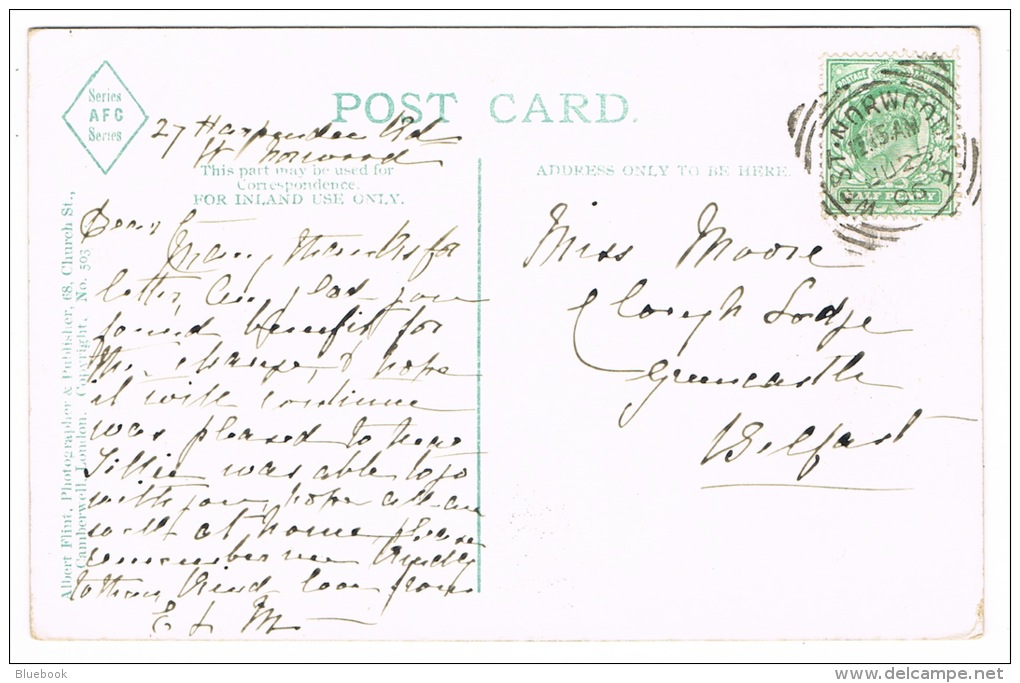 Series
AFC
Series
POST CARD.
27 Harpenden Rd
W Norwood
This part may be used for
Correspondence.
FOR INLAND USE ONLY.
ADDRESS ONLY TO BE HERE.
Dear
Many thanks for
letter, am glad you
found benefit for
the change, & hope
it will continue
was pleased to hear
Tillie was able to go
with you, hope all are
well at home please
remember me kindly
to them, kind love from
E L M
Miss Moore
Clough Lodge
Greencastle
Belfast
WEST NORWOOD S.E
AM
JU 23
06
POSTAGE
HALF PENNY
Albert Flint, Photographer & Publisher, 68, Church St.,
Camberwell, London. Copyright. No. 503
Bluebook
delcampe.net